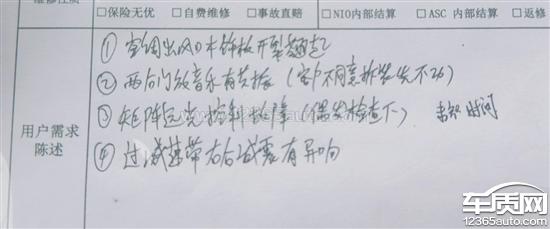 维修性质 □保险无优 □自费维修 □事故直赔 □NIO内部结算 □ASC 内部结算 □返修
用户需求
陈述
① 空调出风口木饰板开裂翘起
② 两后门放音乐有共振（客户不同意拆装先不动）
③ 矩阵远光控制故障（偶发检查下） 时间
④ 过减速带右后减震有异响
车质网
12365auto.com